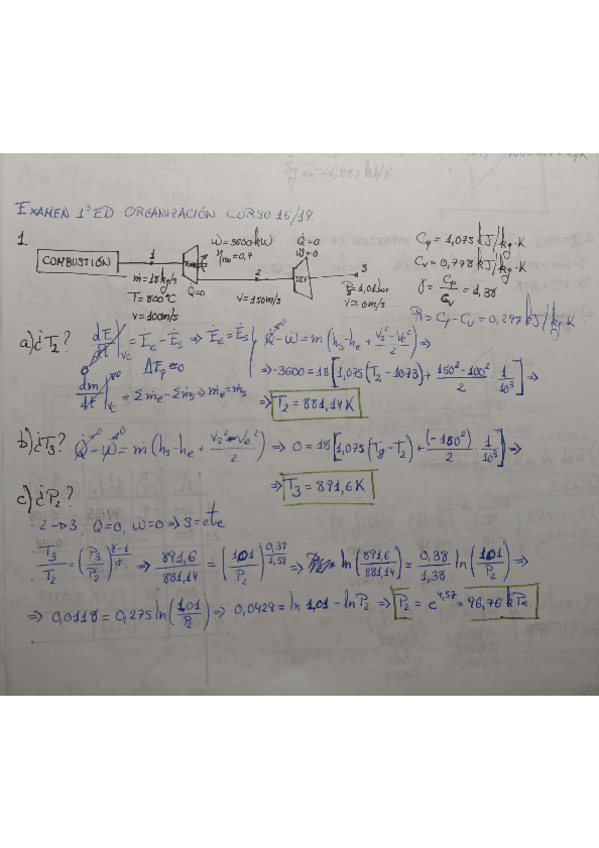 EXAMEN 1ª ED ORGANIZACIÓN CURSO 16/17.
1.
COMBUSTIÓN
1
ṁ = 18 kg/s
T = 800 ℃
v = 100 m/s
Ẇ = 3600 kW
Q̇ = 0
2
v = 150 m/s
Q̇ = 0
Ẇ = 0
DIF
3
P₃ = 1,01 bar
v ≈ 0 m/s
Cp = 1,075 kJ/kg·K
Cv = 0,778 kJ/kg·K
γ = Cp/Cv = 1,38
R = Cp - Cv = 0,297 kJ/kg·K
a) ¿T₂? dE/dt|vc = Ėe - Ės ⇒ Ėe = Ės | Q̇ - Ẇ = ṁ (hs - he + (vs² - ve²)/2) ⇒
ΔEp ≈ 0
⇒ -3600 = 18 [1,075 (T₂ - 1073) + (150² - 100²)/2 · 1/10³] ⇒
dm/dt|vc = Σṁe - Σṁs ⇒ ṁe = ṁs
⇒ T₂ = 881,14 K
b) ¿T₃? Q̇ - Ẇ = ṁ (hs - he + (vs² - ve²)/2) ⇒ 0 = 18 [1,075 (T₃ - T₂) + (-150²)/2 · 1/10³] ⇒
⇒ T₃ = 891,6 K
c) ¿P₂?
2 → 3, Q̇ = 0, Ẇ = 0 ⇒ S = cte
T₃/T₂ = (P₃/P₂)^((γ-1)/γ) ⇒ 891,6/881,14 = (101/P₂)^(0,38/1,38) ⇒ ln(891,6/881,14) = 0,38/1,38 ln(101/P₂) ⇒
⇒ 0,0118 = 0,275 ln(1,01/P₂) ⇒ 0,0429 = ln 1,01 - ln P₂ ⇒ P₂ = e^4,57 = 96,76 kPa